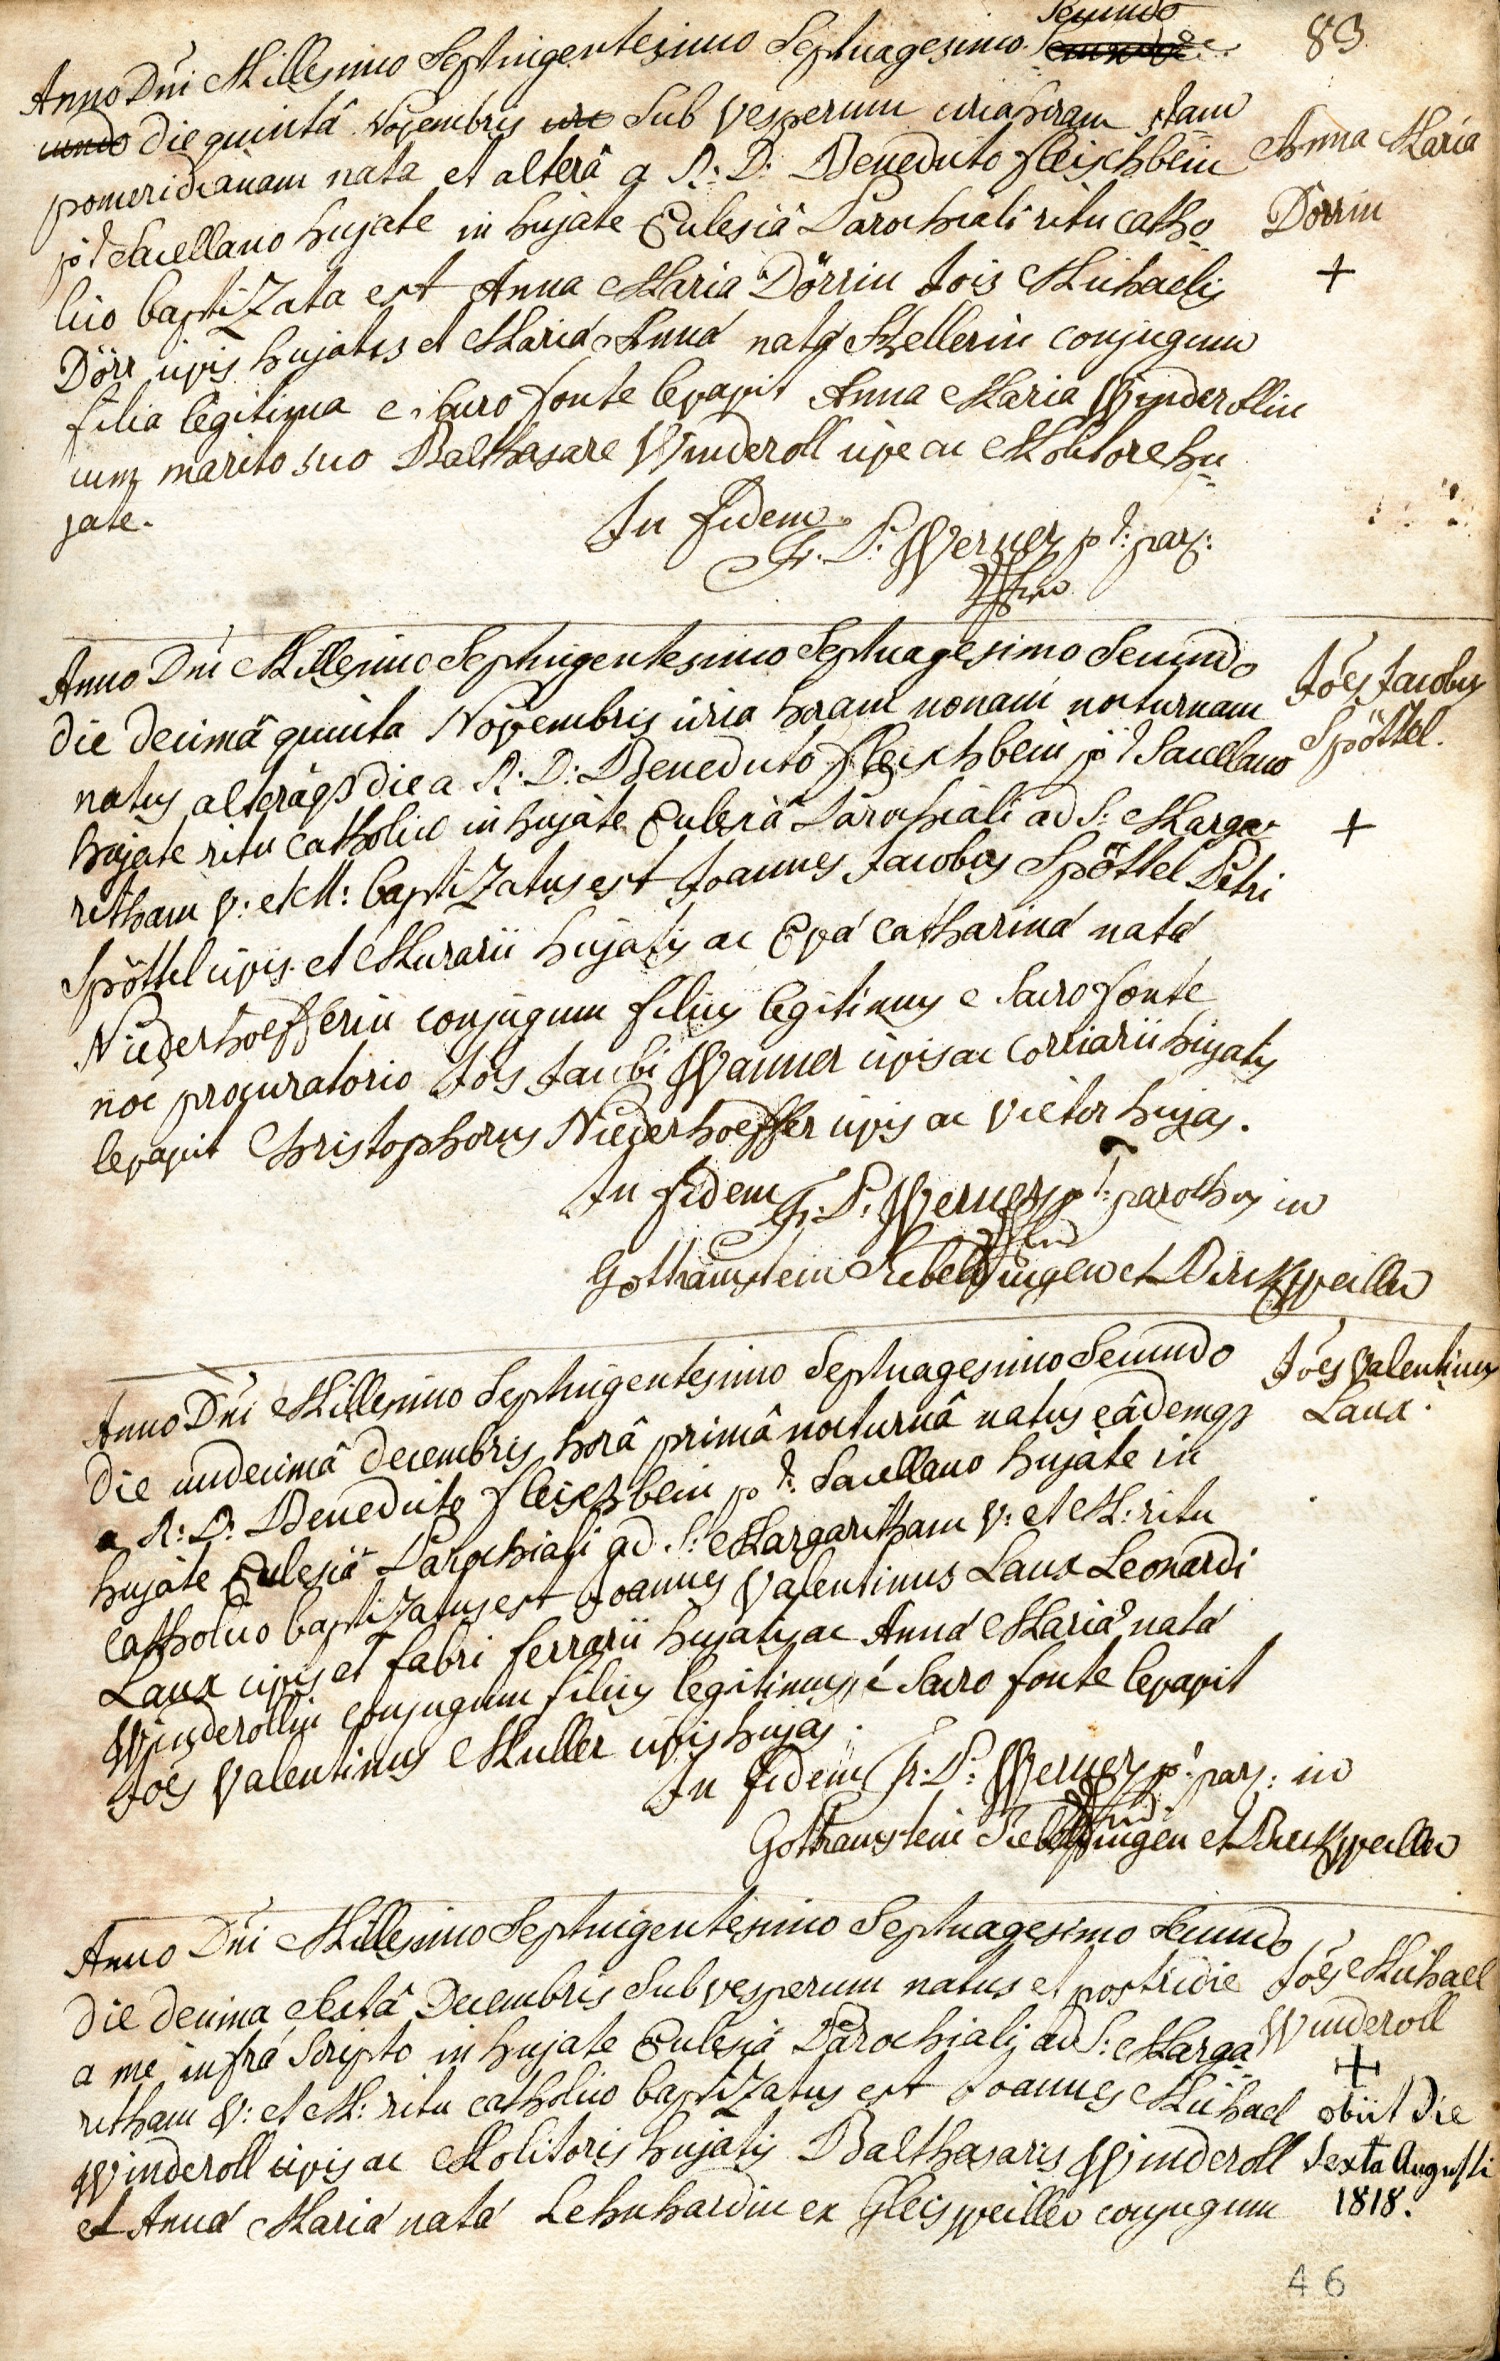 83
Secundo
Anno Dni Millesimo Septuigentesimo Septuagesimo
die quintâ Novembris Sub Vesperum circa horam 5tam
pomeridianam nata et alterâ a R: D: Benedicto fleischbein
p:t Sacellano hujate in hujate Eclesiâ Parochiali ritu catho-
lico baptizata est Anna Maria Dörrin Jois Michaelis
Dörr civis hujatis et Mariâ Annâ natâ Kellerin conjugum
filia legitima e Sacro fonte levavit Anna Maria Winderollin
cum marito suo Balthasare Winderoll cive ac Molitore hu-
jate.
Anna Maria
Dörrin
+
In fidem
Fr. P. Werner p.t: par:
Anno Dni Millesimo Septuigentesimo Septuagesimo Secundo
die decimâ quinta Novembris circa horam nonam nocturnam
natus alterâqȝ die a R: D: Benedicto fleischbein p:t Sacellano
hujate ritu catholico in hujate Eclesiâ Parochiali ad S: Marga-
retham V: et M: baptizatus est Joannes Jacobus Spöttel Petri
Spöttel civis et Murarii hujatis ac Evâ Catharinâ natâ
Niederhoefferin conjugum filius legitimus e Sacro fonte
noe procuratorio Jois Jacobi Wanner civis ac Corriarii hujatis
levavit Christophorus Niederhoeffer civis ac vietor hujas.
Jôes Jacobus
Spöttel.
+
In fidem Fr: P: Werner p.t: parochus in
Gothamstein Siebeldingen et Birckweiller
Anno Dni Millesimo Septuigentesimo Septuagesimo Secundo
die undecimâ Decembris horâ primâ nocturnâ natus eâdemqȝ
a R: D: Benedicto fleischbein p.t: Sacellano hujate in
hujate Eclesiâ Parochiali ad S: Margaritham V: et M: ritu
catholico baptizatus est Joannes Valentinus Laux Leonardi
Laux civis et fabri ferrarii hujatis ac Annâ Mariâ natâ
Winderollin conjugum filius legitimus, é Sacro fonte levavit
Joês Valentinus Muller civis hujas.
Jôes Valentinus
Laux.
In fidem Fr: P: Werner p.t: par: in
Gothramstein Siebeldingen et Birckweiller
Anno Dni Millesimo Septuigentesimo Septuagesimo Secundo
die decima Sextâ Decembris Sub vesperum natus et postridie
a me infrá Scripto in hujate Eclesiâ Parochiali ad S: Marga-
retham V: et M: ritu catholico baptizatus est Joannes Michael
Winderoll civis ac Molitoris hujatis Balthasaris Winderoll
et Annâ Mariâ natâ Lehnhardin ex Gleisweiller conjugum
Jôes Michael
Winderoll
+
obiit die
Sexta Augusti
1818.
46